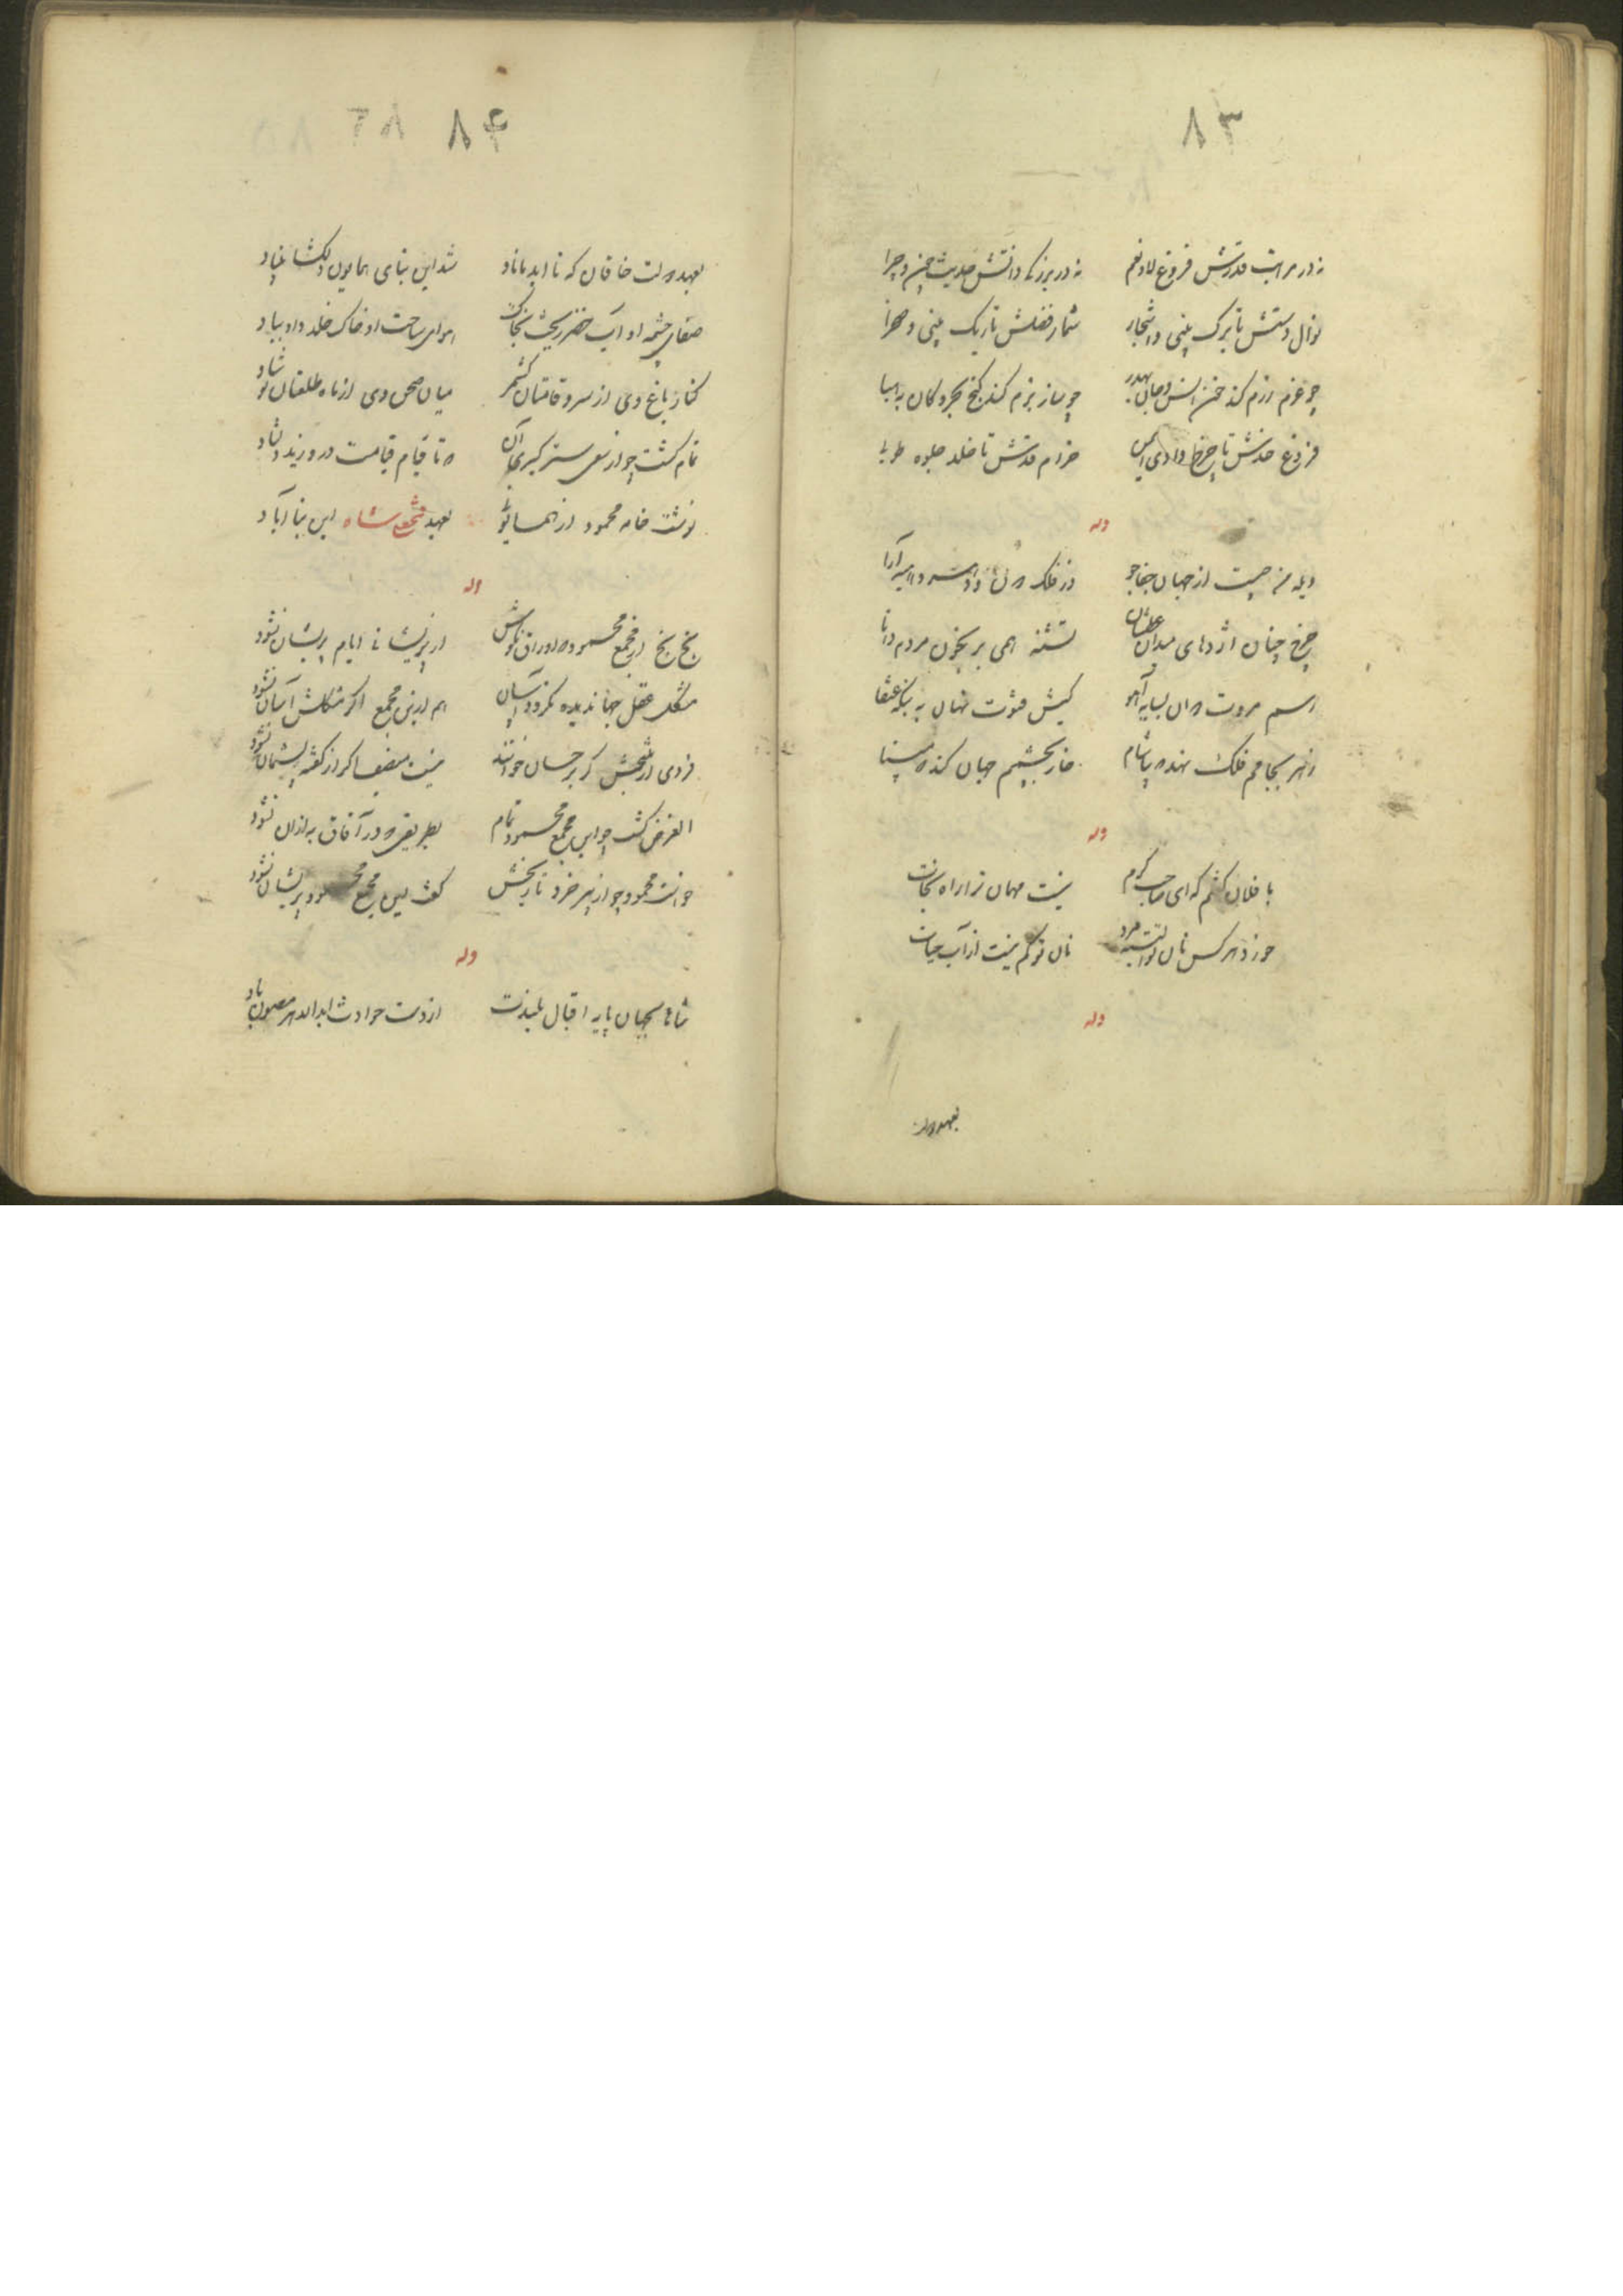 ۸۳
نه در مراتب قدرتش فروغ لا و نعم
نه در بزرگی دانتش حدیث چون و چرا
نوال دستش با برک بینی و اشجار
شمار فضلش تا ریک بینی و صحرا
چو عزم رزم کند خون انس و جان بهدر
چو ساز بزم کند گنج بحر و کان به هبا
فروغ خدش تا چرخ وادی ایمن
خرام قدش تا خلد جلوه طوبی
وله
چیست از جهان جفاجو
در فلک
چرخ چنان اژدهای میدان عطشان
تشنه همی بر بخون مردم دانا
رسم مروت روان بسایه آهو
کیش فتوت نهان به بنگه عنقا
زهر بجامم فلک نهد که بیاشام
خار بچشمم جهان کند که ببینا
وله
با فلان گفتم که ای صاحب کرم
نیست مهمان ترا راه نجات
خورد هر کس نان تو البته مرد
نان تو کم نیست از آب حیات
وله
بعهد دولت
۸۴
بعهد دولت خاقان که تا ابد باناد
شد این بنای همایون دلکشا بنیاد
صفای چشمه او آب خضر ریخت بخاک
هوای ساحت او خاک خلد داد بباد
کنار باغ وی از سرو قامتان کشمر
میان صحن وی از ماه طلعتان نوشاد
تمام گشت چو از سعی ستر کبری آن
که تا قیام قیامت درو زید دلشاد
نوشت خامه محمود از همایونی
بعهد فتحعلی شاه این بنا آباد
وله
بخ بخ از مجمع محمود که اوراق خوشش
از پریشانی ایام پریشان نشود
مشکل عقل جهاندیده نکردد آسان
هم ازین مجمع اگر مشکلش آسان نشود
فردی از منتخبش گر بر حسان خوانند
نیست منصف اگر از گفته پشیمان نشود
الغرض گشت چو این مجمع محمود تمام
بطریقی که در آفاق به از آن نشود
خواست محمود چو از پیر خرد تاریخش
گفت این مجمع محمود پریشان نشود
وله
شاها بجهان پایه اقبال بلندت
از دست حوادث ابد الدهر مصون باد